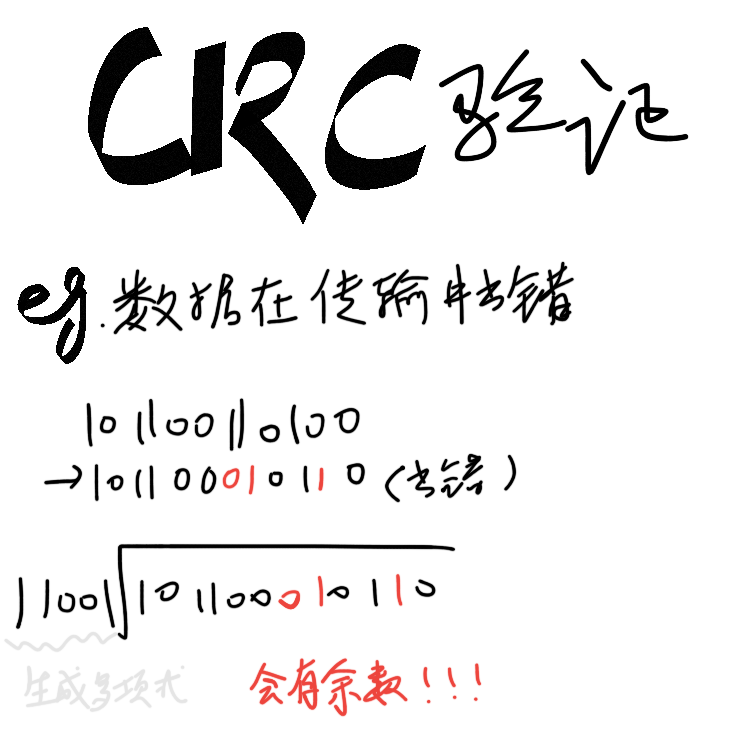 CRC验证
eg.数据在传输中出错
101100110100
→101100010110(出错)
11001 101100010110
生成多项式 会有余数!!!